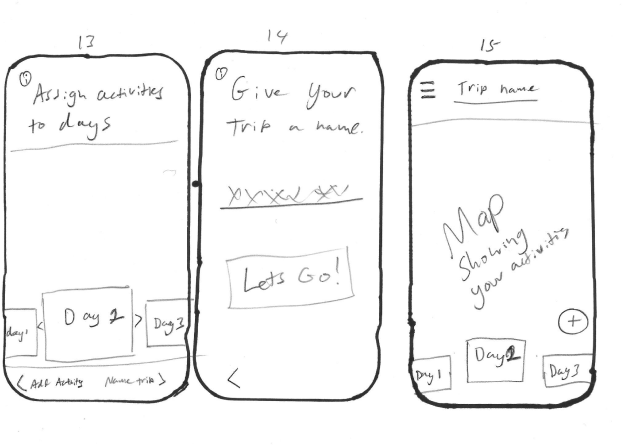 13
i
Assign activities
to days
day1
<
Day 2
>
Day 3
< Add Activity
Name trip >
14
i
Give Your
Trip a name.
XXXXX XX
Lets Go!
<
15
Trip name
Map
Showing
your activities
+
Day 1
Day 2
Day 3